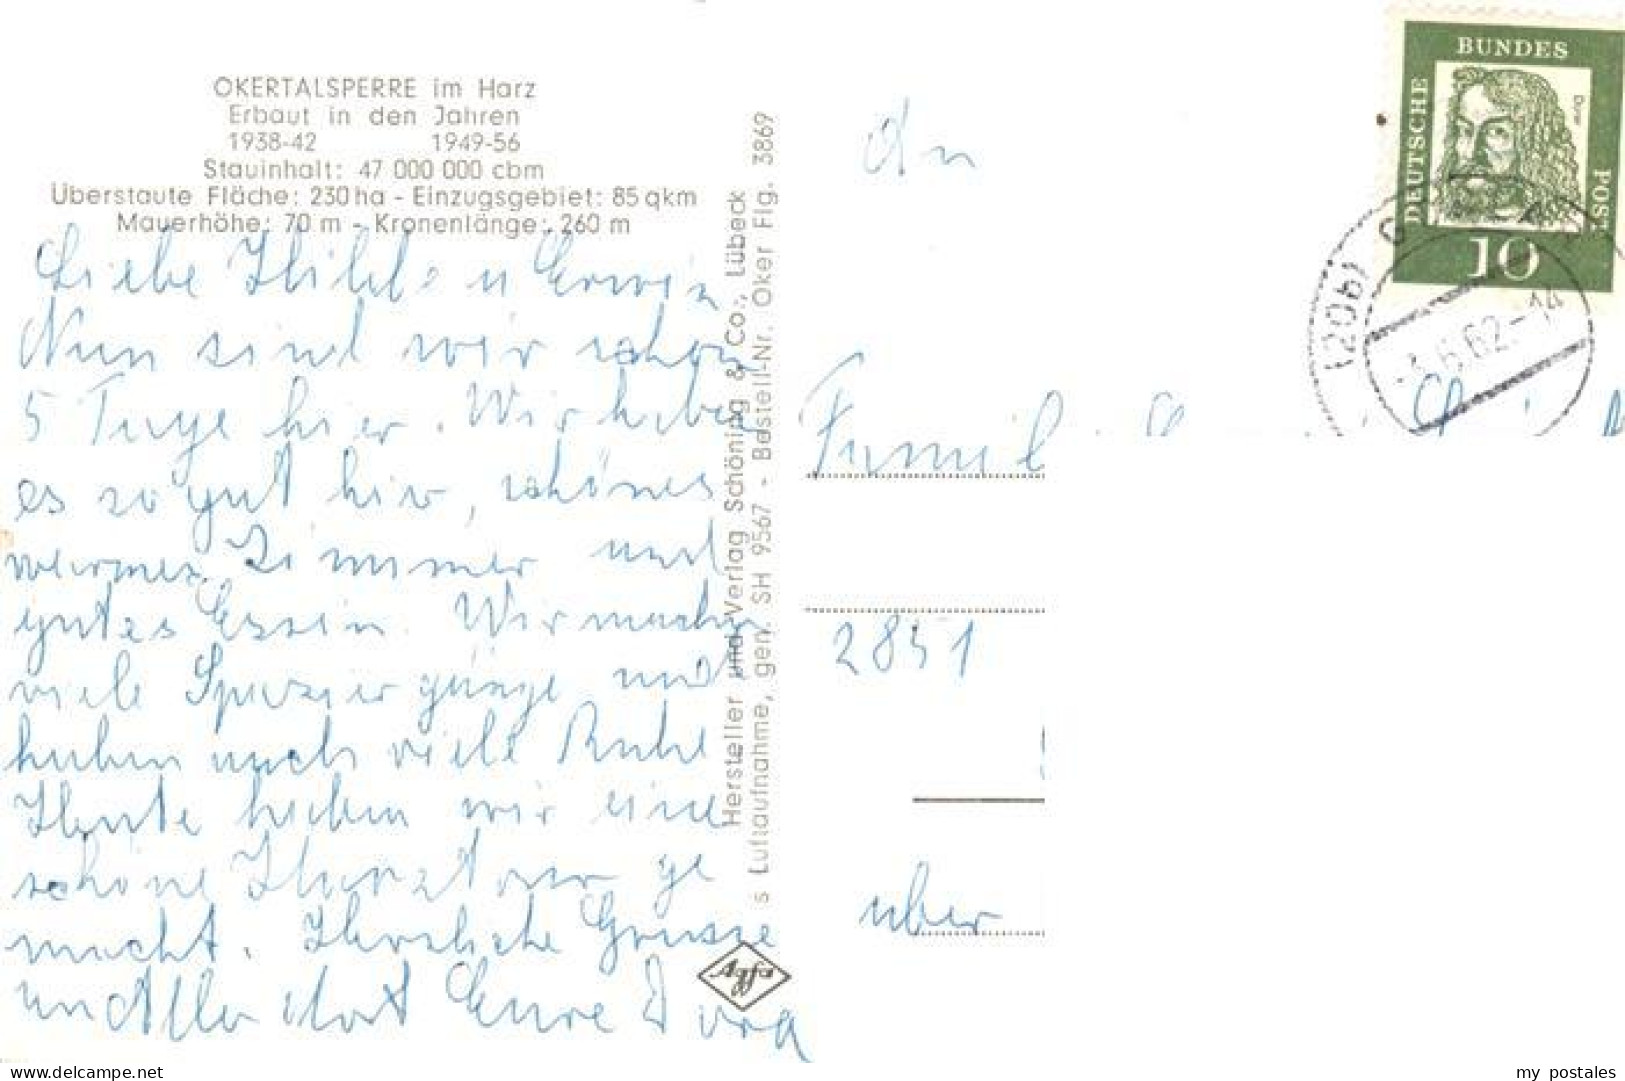 OKERTALSPERRE im Harz
Erbaut in den Jahren
1938-42 1949-56
Stauinhalt: 47 000 000 cbm
Überstaute Fläche: 230 ha - Einzugsgebiet: 85 qkm
Mauerhöhe: 70 m - Kronenlänge: 260 m
Liebe Hilde u Erwin
Nun sind wir schon
5 Tage hier. Wir haben
es so gut hier, schönes
warmes Zimmer und
gutes Essen. Wir machen
viele Spaziergänge und
haben auch viele Ruhe
Heute haben wir eine
schöne Harztour ge
macht. Herzliche Grüsse
und Alles Gute Eure Dora
Hersteller und Verlag Schöning & Co., Lübeck
s Luftaufnahme, gen. SH 9567 - Bestell-Nr. Oker Flg. 3869
Agfa
An
Famil
2851
über
DEUTSCHE
BUNDES
POST
Dürer
10
(20b)
6.62.-14
my postales
www.delcampe.net